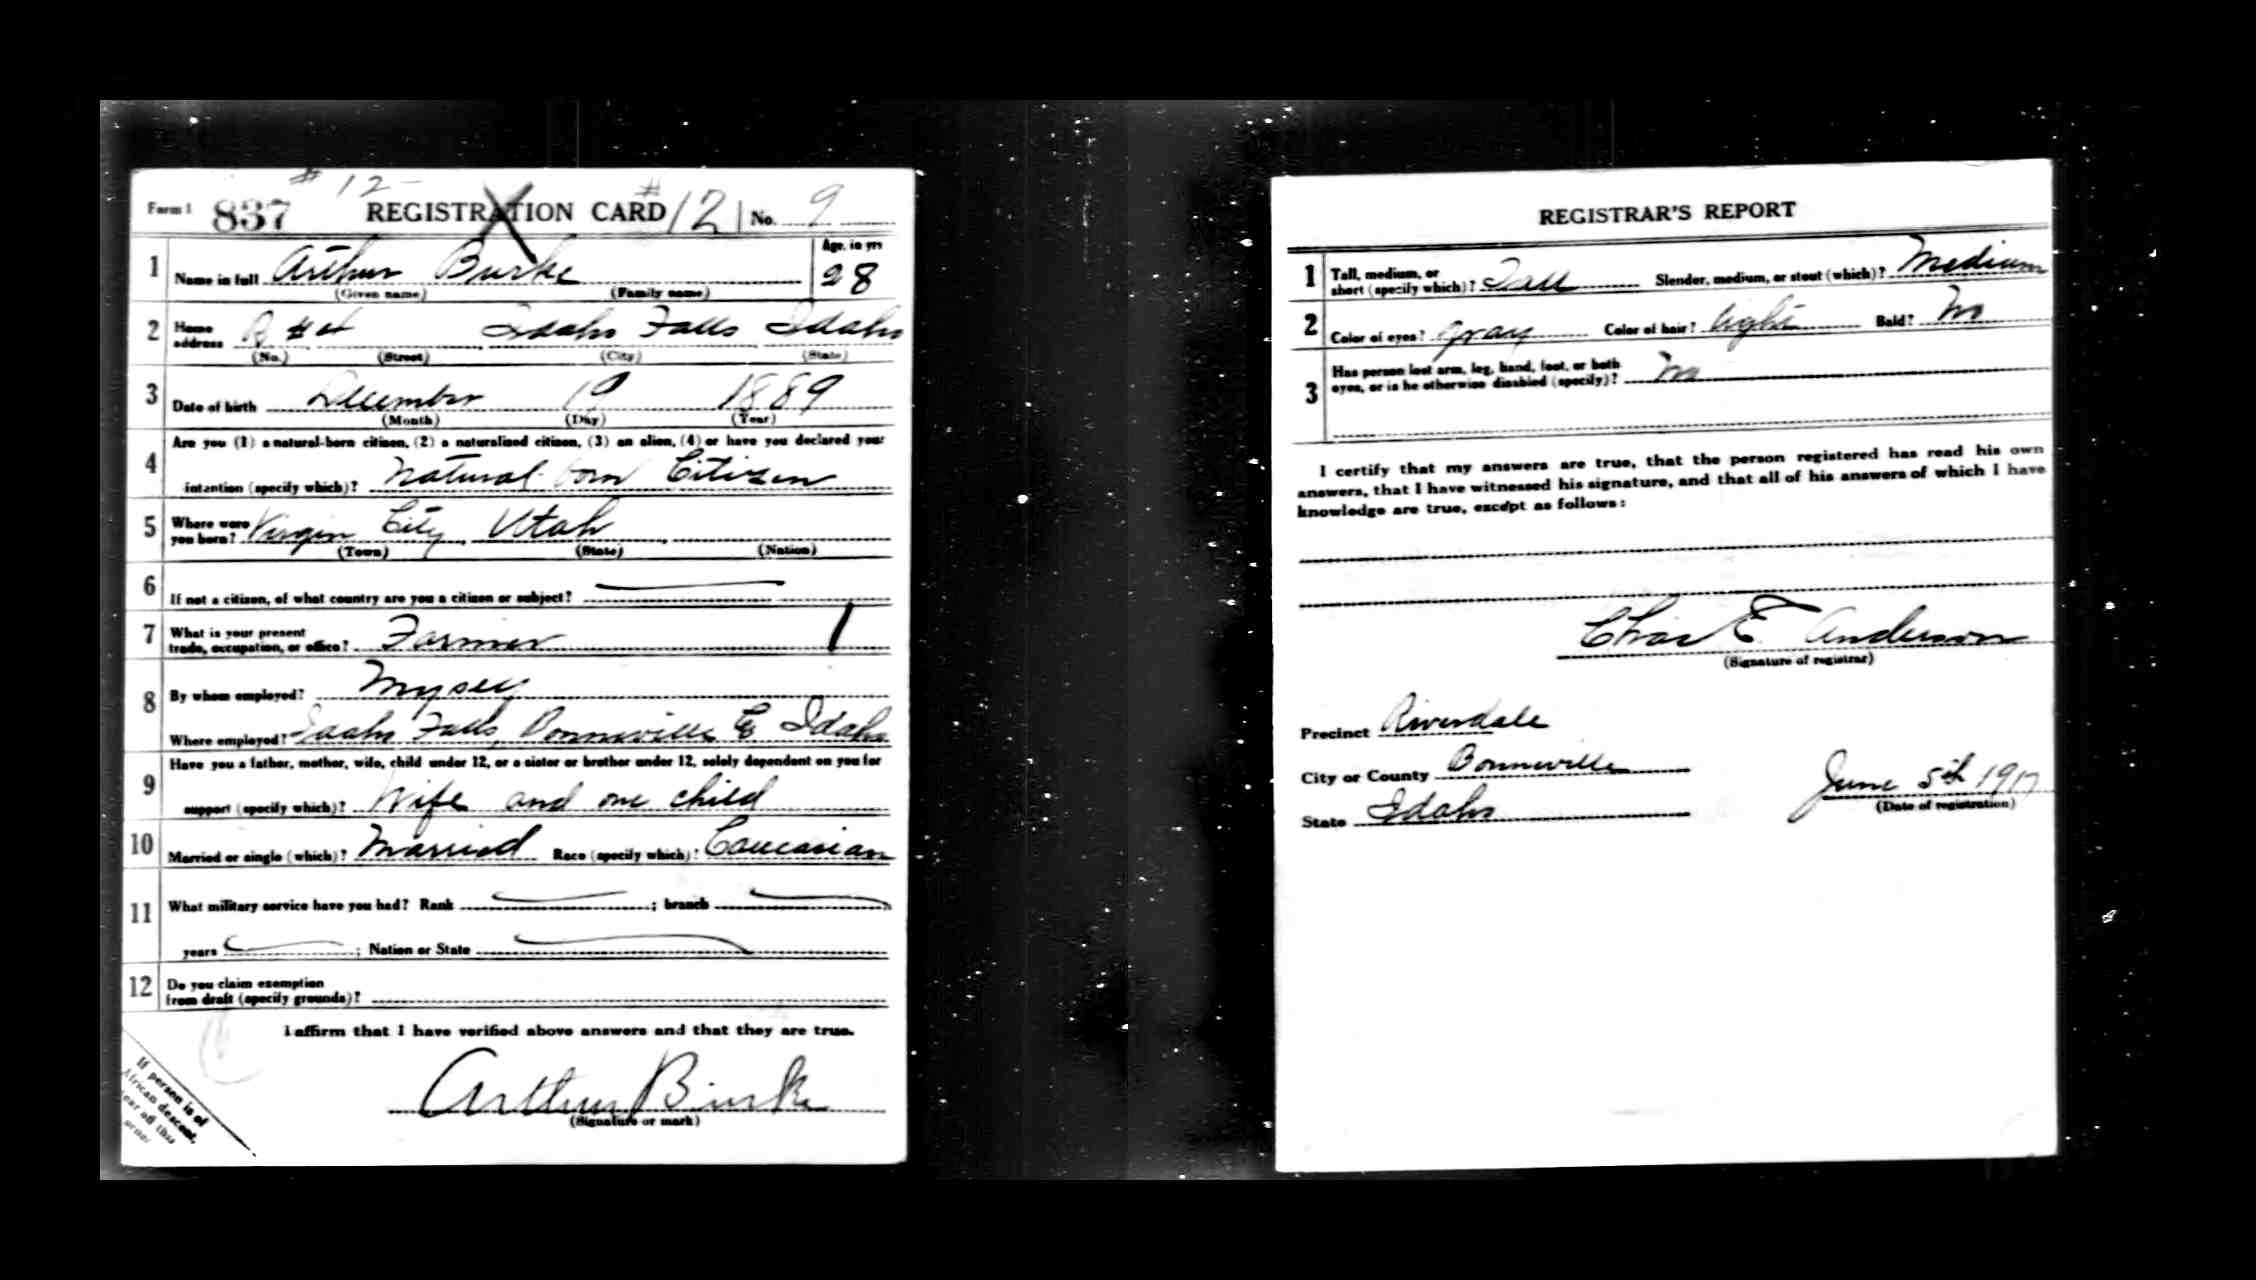 # 12-
Form 1 837 REGISTRATION CARD # 12 No. 9
1 Name in full Arthur Burke Age, in yrs 28
(Given name) (Family name)
2 Home address R # Idaho Falls Idaho
(No.) (Street) (City) (State)
3 Date of birth December 19 1889
(Month) (Day) (Year)
4 Are you (1) a natural-born citizen, (2) a naturalized citizen, (3) an alien, (4) or have you declared your
intention (specify which)? Natural born Citizen
5 Where were you born? Virgin City, Utah
(Town) (State) (Nation)
6 If not a citizen, of what country are you a citizen or subject? —
7 What is your present
trade, occupation, or office? Farmer 1
8 By whom employed? Myself
Where employed? Idaho Falls, Bonneville Co Idaho
9 Have you a father, mother, wife, child under 12, or a sister or brother under 12, solely dependent on you for
support (specify which)? Wife and one child
10 Married or single (which)? Married Race (specify which)? Caucasian
11 What military service have you had? Rank — ; branch —
years — ; Nation or State —
12 Do you claim exemption
from draft (specify grounds)?
I affirm that I have verified above answers and that they are true.
Arthur Burke
(Signature or mark)
If person is of
African descent,
tear off this
corner
REGISTRAR'S REPORT
1 Tall, medium, or
short (specify which)? Tall Slender, medium, or stout (which)? Medium
2 Color of eyes? gray Color of hair? light Bald? No
3 Has person lost arm, leg, hand, foot, or both
eyes, or is he otherwise disabled (specify)? No
I certify that my answers are true, that the person registered has read his own
answers, that I have witnessed his signature, and that all of his answers of which I have
knowledge are true, except as follows:
Chas E. Anderson
(Signature of registrar)
Precinct Riverdale
City or County Bonneville
State Idaho
June 5th 1917
(Date of registration)